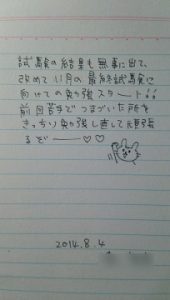 試験の結果も無事に出て、
改めて11月の最終試験に
向けての勉強スタート!!
前回苦手でつまづいた所を
きっちり勉強し直して頑張
るぞー♡♡
2014.8.4